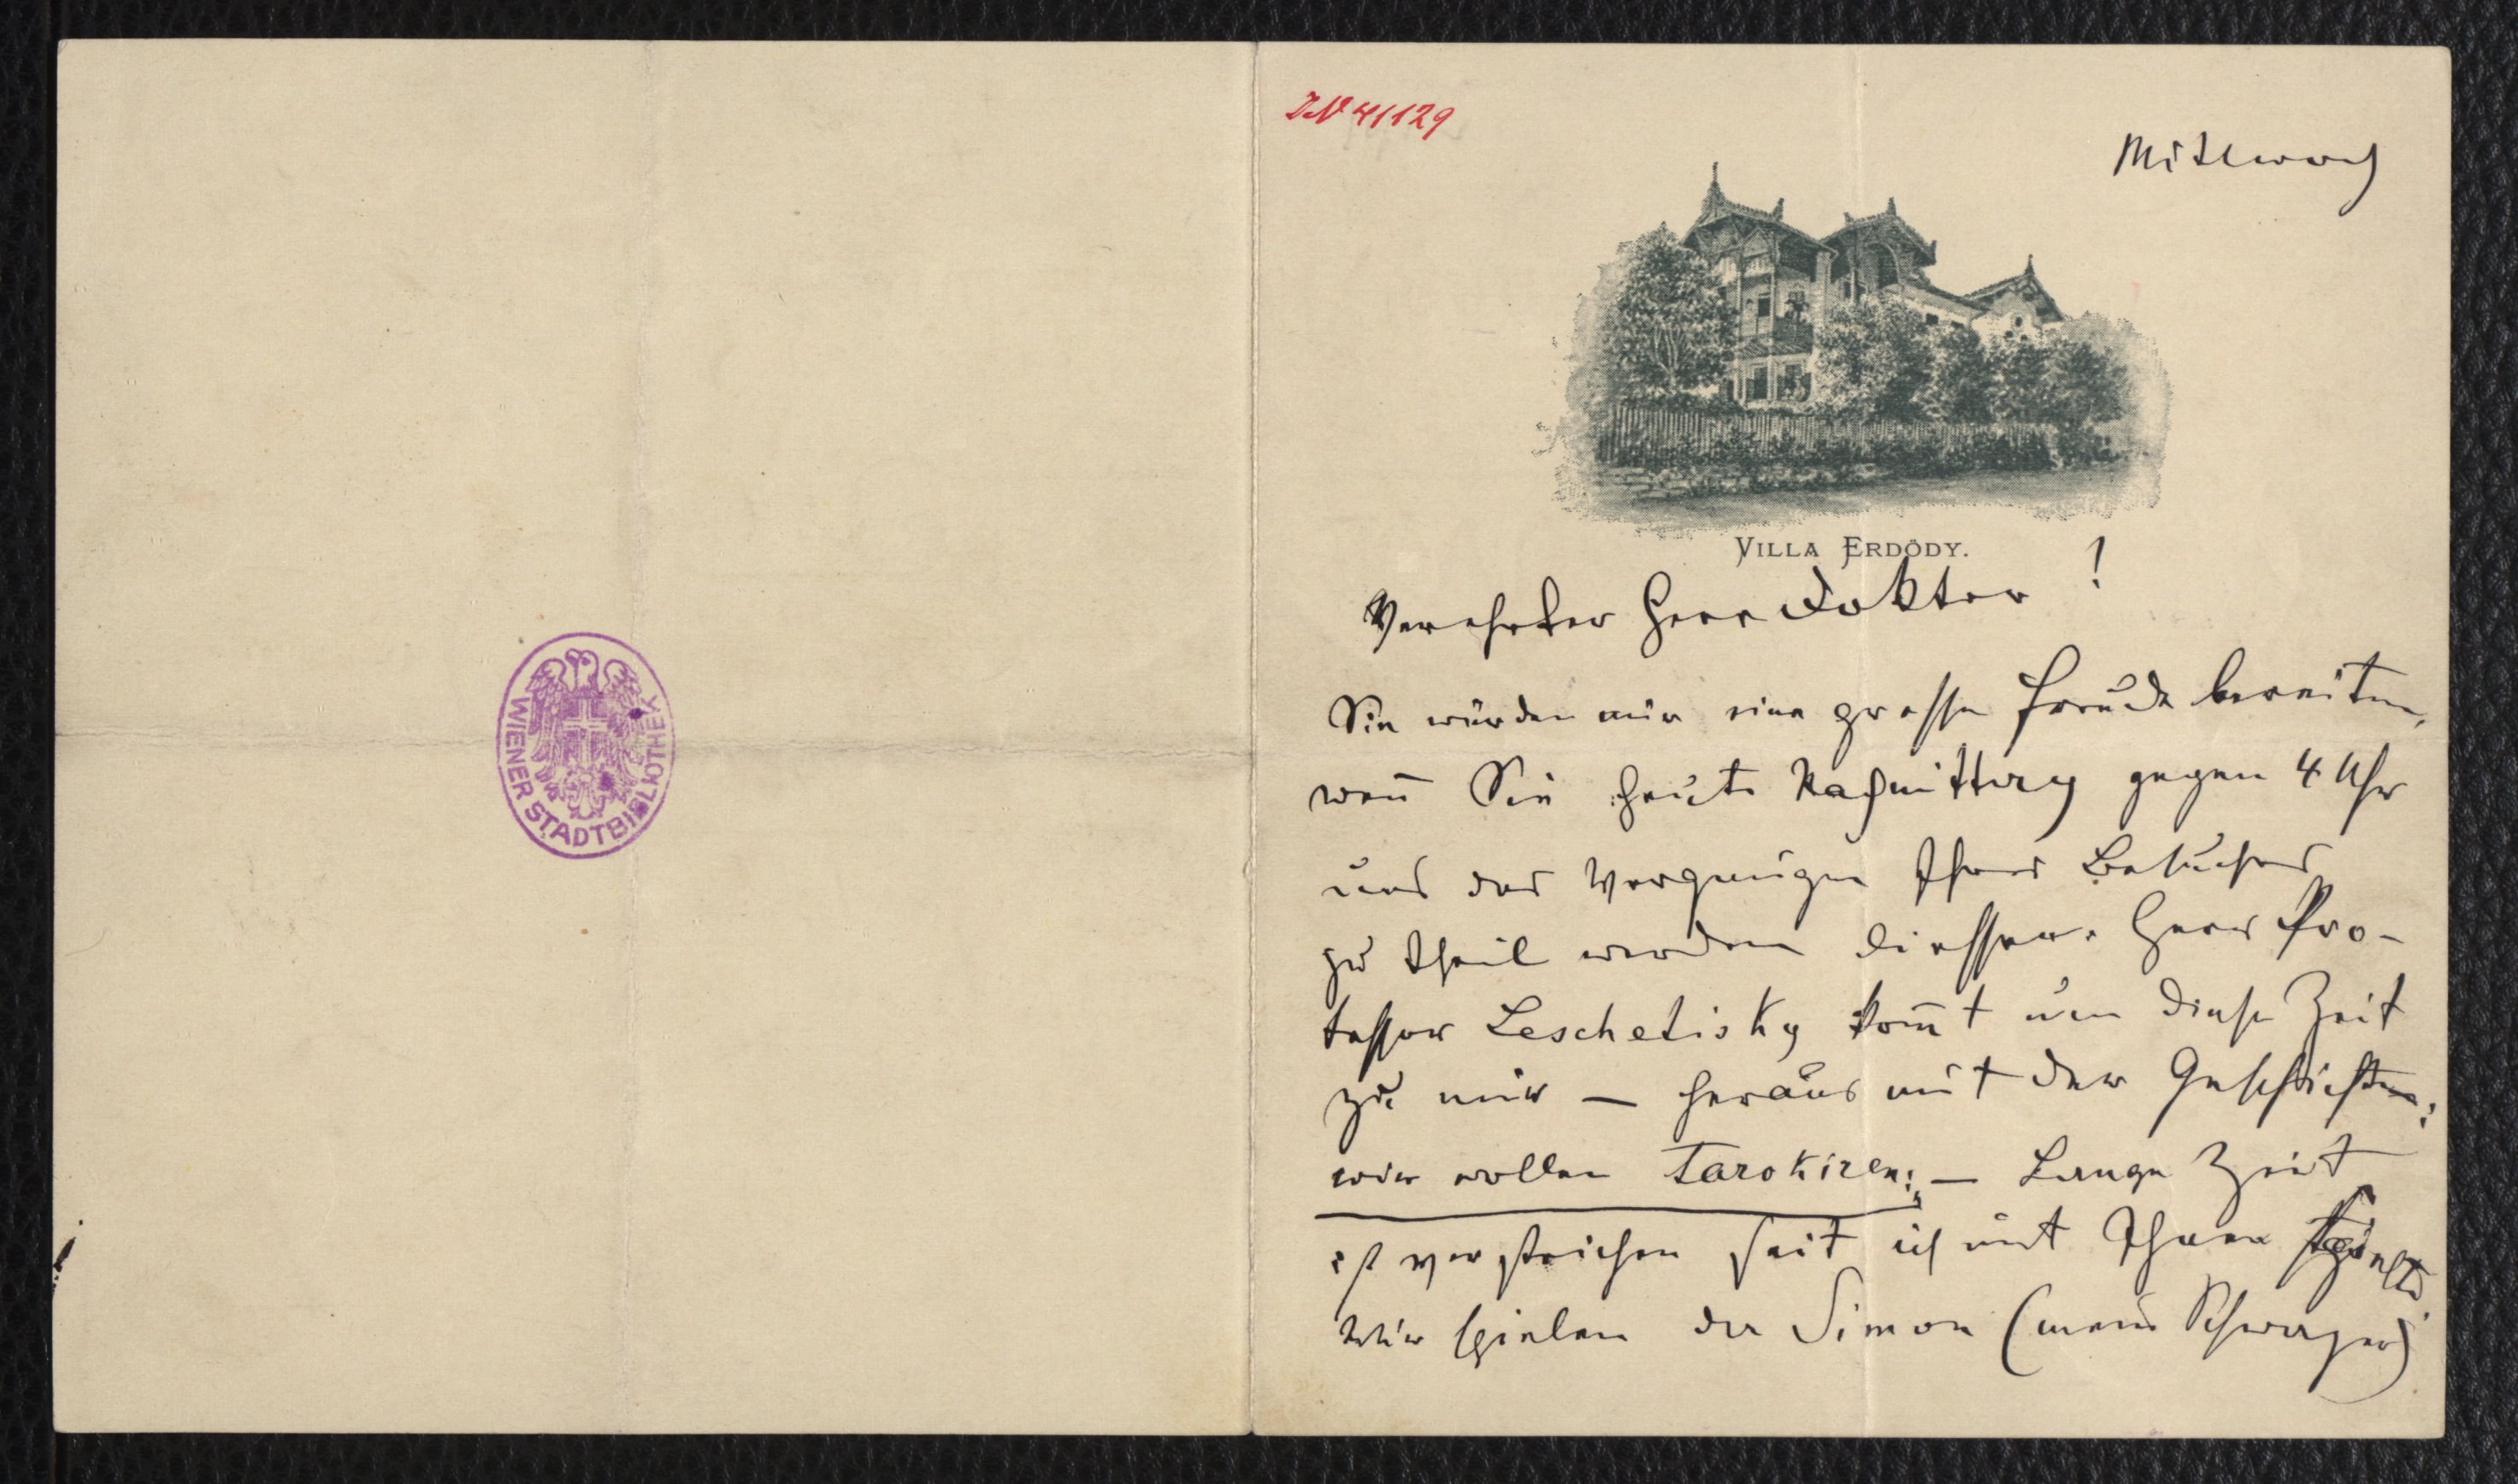 WIENER STADTBIBLIOTHEK
IN 41129
Mittwoch
VILLA ERDÖDY.
Verehrter Herr Doktor!
Sie würden mir eine grosse Freude bereiten,
wen̄ Sie heute Nachmittag gegen 4 Uhr
uns das Vergnügen Ihres Besuches
zu theil werden liessen. Herr Pro-
fessor Leschetisky kom̄t um diese Zeit
zu mir — heraus mit der Geschichte:
wir wollen Tarokiren; — Lange Zeit
ist verstrichen seit ich mit Ihnen
wir spielen der Simon (mein Schwager)